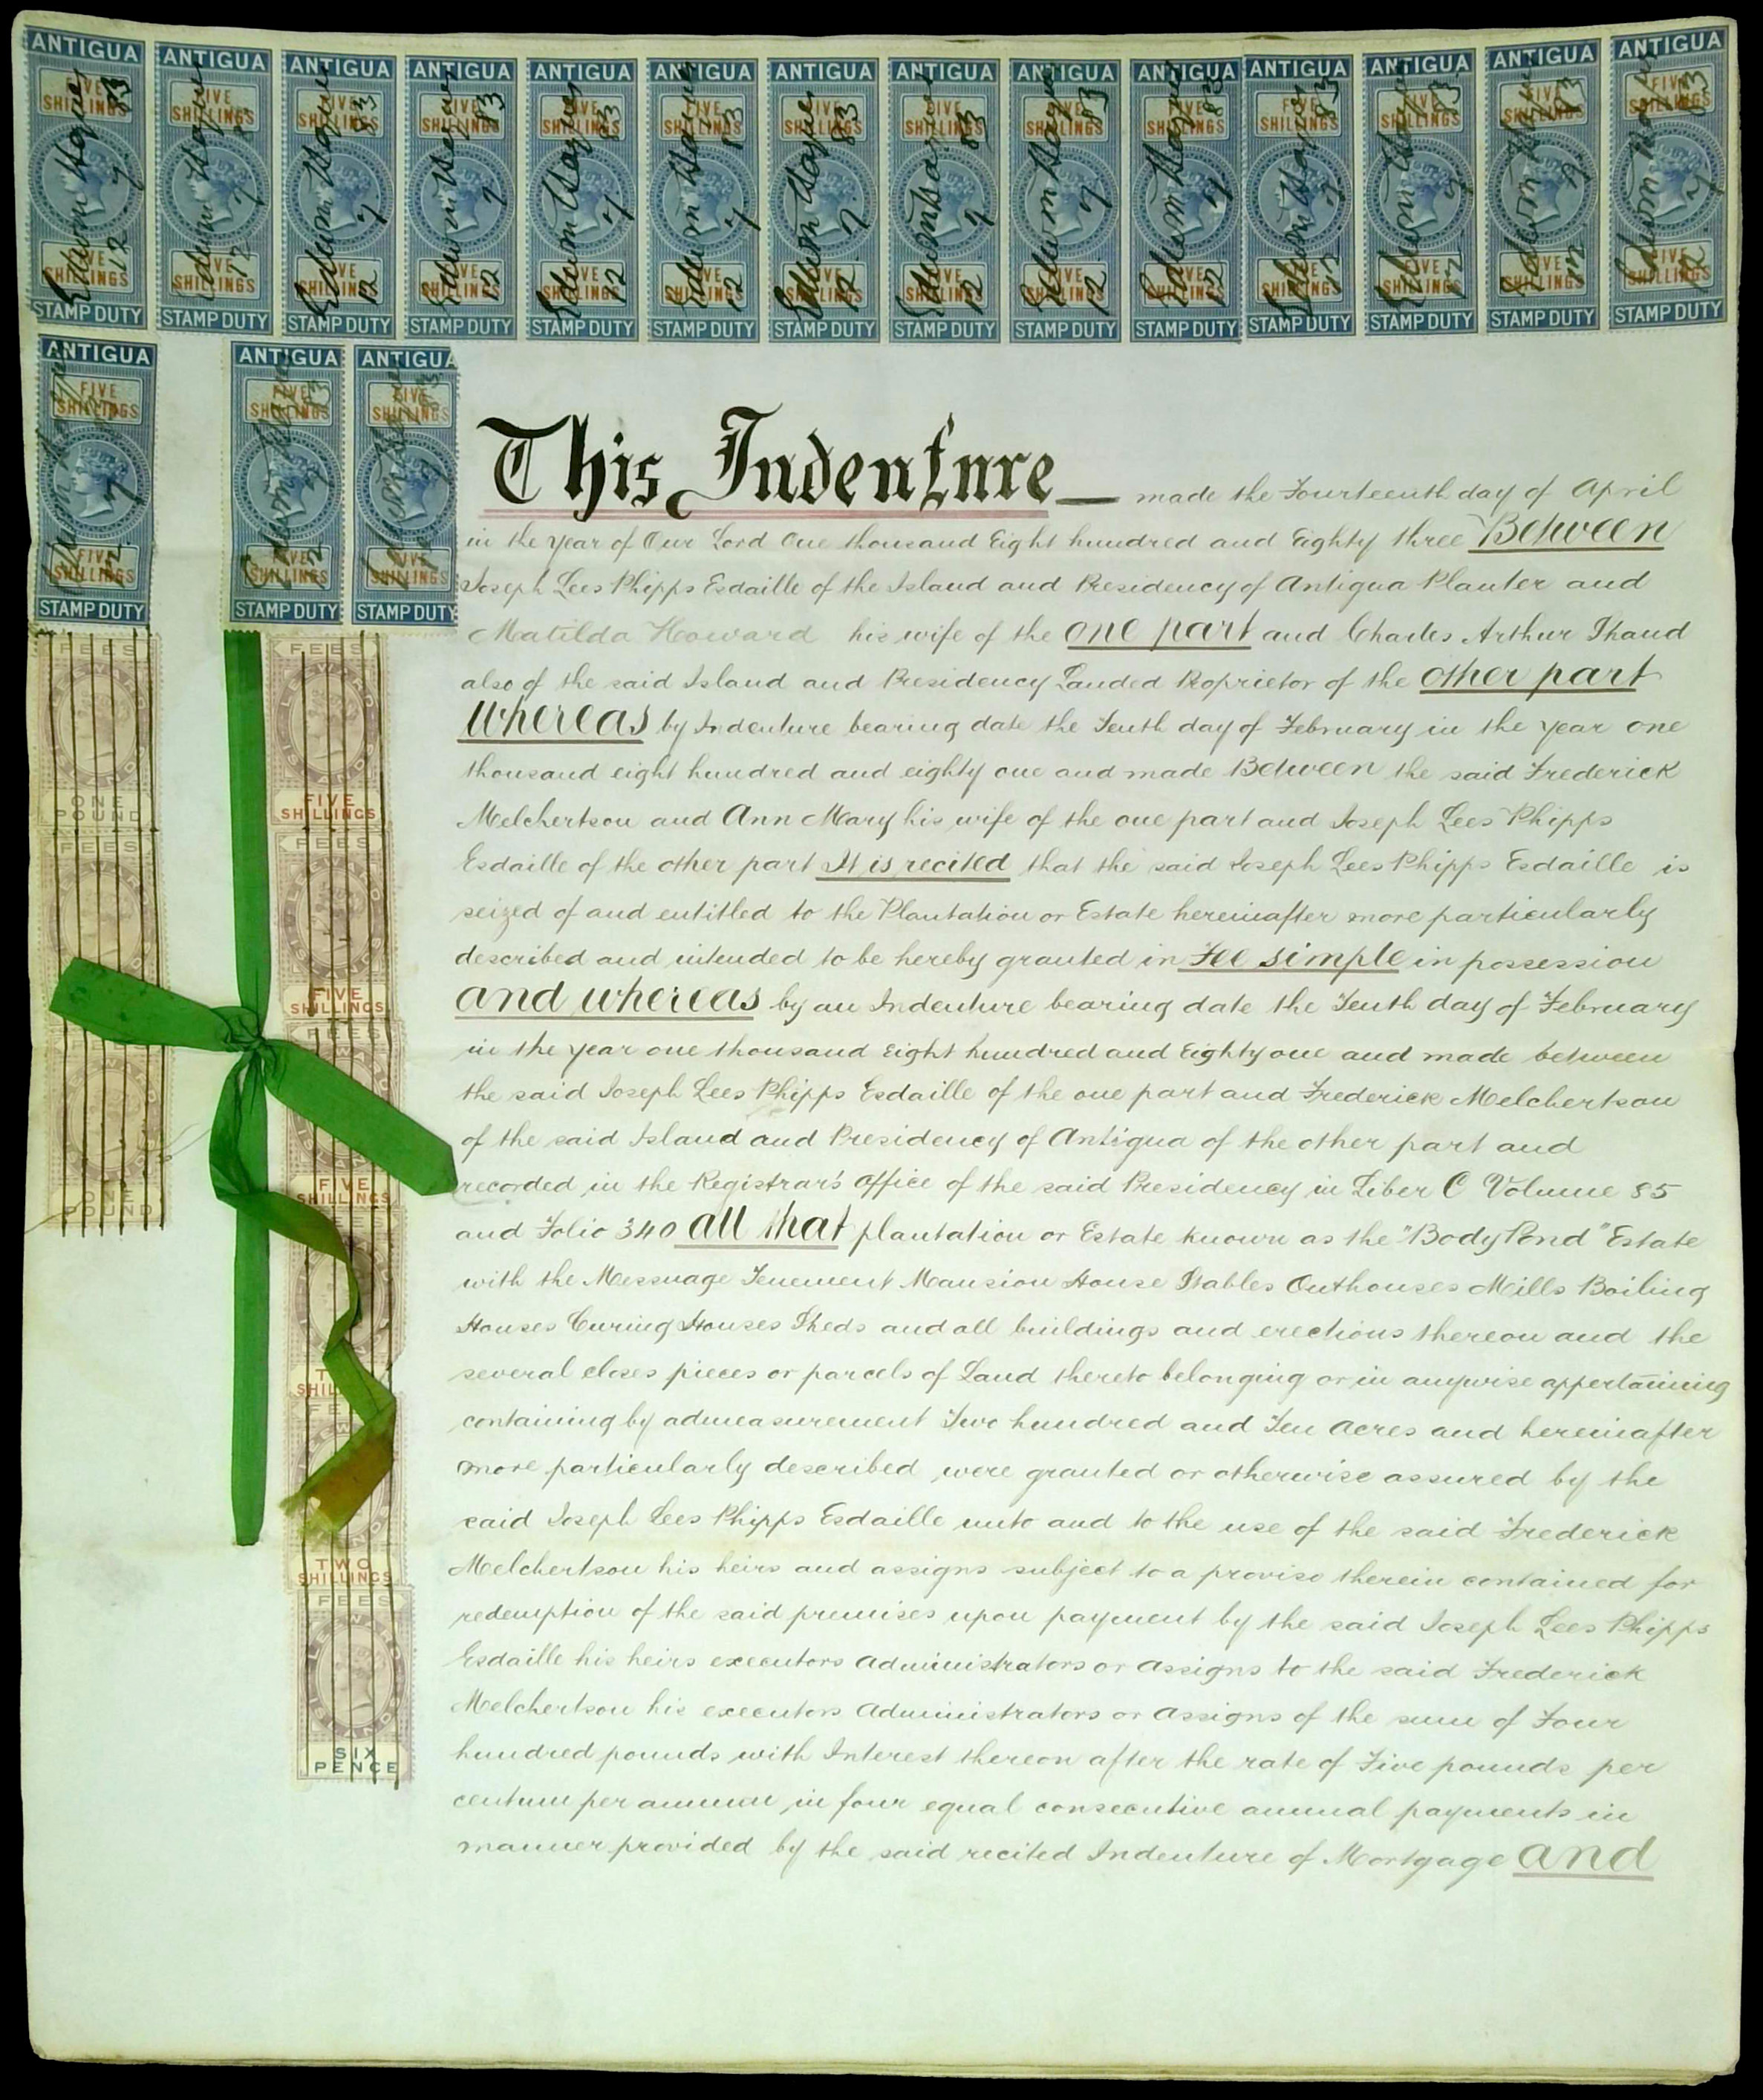 ANTIGUA ANTIGUA ANTIGUA ANTIGUA ANTIGUA ANTIGUA ANTIGUA ANTIGUA ANTIGUA ANTIGUA ANTIGUA ANTIGUA ANTIGUA ANTIGUA
FIVE SHILLINGS FIVE SHILLINGS FIVE SHILLINGS FIVE SHILLINGS FIVE SHILLINGS FIVE SHILLINGS FIVE SHILLINGS FIVE SHILLINGS FIVE SHILLINGS FIVE SHILLINGS FIVE SHILLINGS FIVE SHILLINGS FIVE SHILLINGS FIVE SHILLINGS
FIVE SHILLINGS FIVE SHILLINGS FIVE SHILLINGS FIVE SHILLINGS FIVE SHILLINGS FIVE SHILLINGS FIVE SHILLINGS FIVE SHILLINGS FIVE SHILLINGS FIVE SHILLINGS FIVE SHILLINGS FIVE SHILLINGS FIVE SHILLINGS FIVE SHILLINGS
STAMP DUTY STAMP DUTY STAMP DUTY STAMP DUTY STAMP DUTY STAMP DUTY STAMP DUTY STAMP DUTY STAMP DUTY STAMP DUTY STAMP DUTY STAMP DUTY STAMP DUTY STAMP DUTY
ANTIGUA ANTIGUA ANTIGUA
FIVE SHILLINGS FIVE SHILLINGS FIVE SHILLINGS
FIVE SHILLINGS FIVE SHILLINGS FIVE SHILLINGS
STAMP DUTY STAMP DUTY STAMP DUTY
FEES
ONE POUND
FEES
ONE POUND
FEES
FIVE SHILLINGS
FEES
FIVE SHILLINGS
FEES
FIVE SHILLINGS
TWO SHILLINGS
FEES
SIX PENCE
This Indenture made the Fourteenth day of April
in the Year of Our Lord One thousand Eight hundred and Eighty three Between
Joseph Lees Phipps Esdaille of the Island and Presidency of Antigua Planter and
Matilda Howard his wife of the one part and Charles Arthur Shand
also of the said Island and Presidency Landed Proprietor of the other part
Whereas by Indenture bearing date the Tenth day of February in the Year one
thousand eight hundred and eighty one and made Between the said Frederick
Melchertson and Ann Mary his wife of the one part and Joseph Lees Phipps
Esdaille of the other part It is recited that the said Joseph Lees Phipps Esdaille is
seized of and entitled to the Plantation or Estate hereinafter more particularly
described and intended to be hereby granted in Fee simple in possession
And whereas by an Indenture bearing date the Tenth day of February
in the Year one thousand Eight hundred and Eighty one and made between
the said Joseph Lees Phipps Esdaille of the one part and Frederick Melchertson
of the said Island and Presidency of Antigua of the other part and
recorded in the Registrar's Office of the said Presidency in Liber C Volume 85
and Folio 340 all that plantation or Estate known as the "Body Pond" Estate
with the Messuage Tenement Mansion House Stables Outhouses Mills Boiling
Houses Curing Houses Sheds and all buildings and erections thereon and the
several closes pieces or parcels of Land thereto belonging or in anywise appertaining
containing by admeasurement Two hundred and Ten Acres and hereinafter
more particularly described were granted or otherwise assured by the
said Joseph Lees Phipps Esdaille unto and to the use of the said Frederick
Melchertson his heirs and assigns subject to a proviso therein contained for
redemption of the said premises upon payment by the said Joseph Lees Phipps
Esdaille his heirs executors Administrators or Assigns to the said Frederick
Melchertson his executors Administrators or Assigns of the sum of Four
hundred pounds with Interest thereon after the rate of Five pounds per
centum per annum in four equal consecutive annual payments in
manner provided by the said recited Indenture of Mortgage And